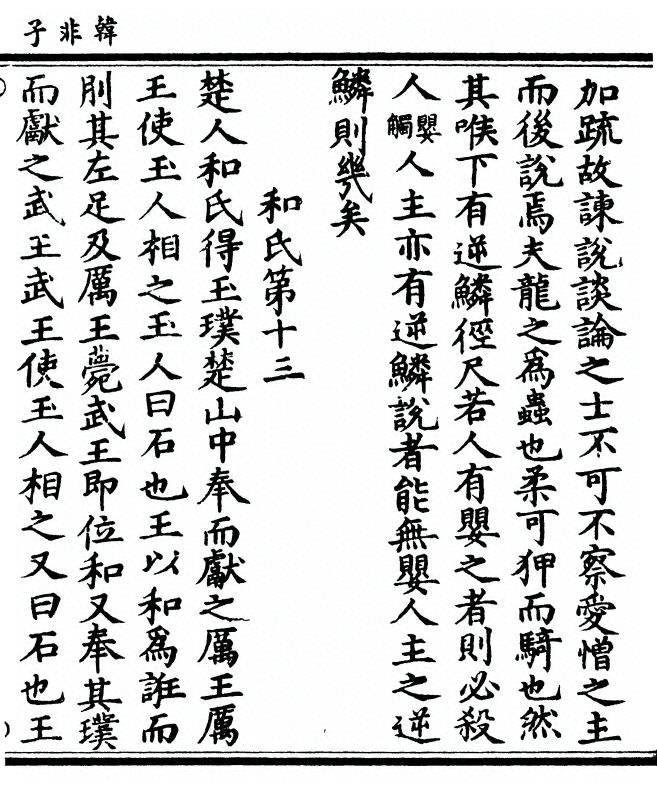 韓非子
加疏故諫說談論之士不可不察愛憎之主
而後說焉夫龍之爲蟲也柔可狎而騎也然
其喉下有逆鱗徑尺若人有嬰之者則必殺
人嬰觸人主亦有逆鱗說者能無嬰人主之逆
鱗則幾矣
和氏第十三
楚人和氏得玉璞楚山中奉而獻之厲王厲
王使玉人相之玉人曰石也王以和爲誑而
刖其左足及厲王薨武王即位和又奉其璞
而獻之武王武王使玉人相之又曰石也王